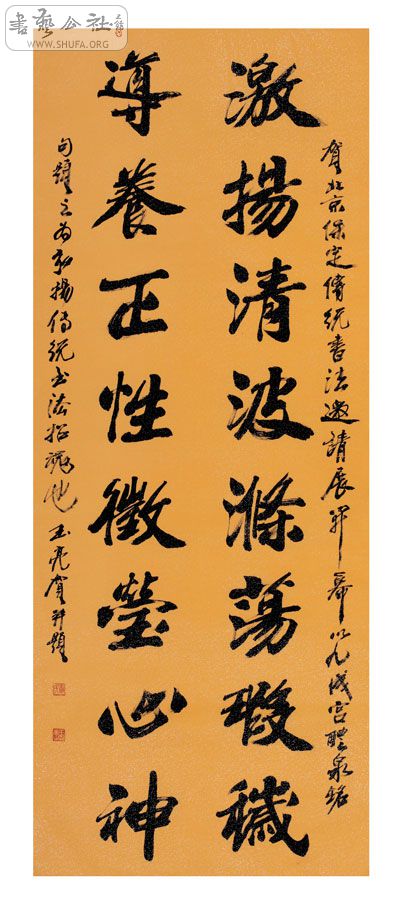 書藝公社
WWW.SHUFA.ORG
賀北京保定傳統書法邀請展開幕以九成宮醴泉銘
激揚清波滌蕩瑕穢
導養正性徵瑩心神
句題之為弘揚傳統書法招魂也玉亮賀并題